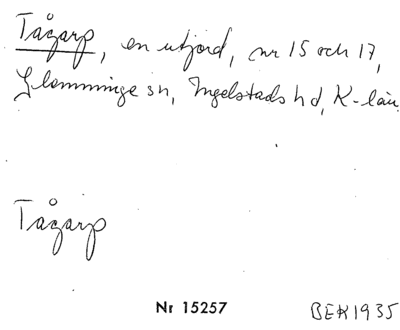 Tågarp, en utjord, nr 15 och 17,
Glemminge sn, Ingelstads hd, K-län.
Tågarp
Nr 15257 BEK1935